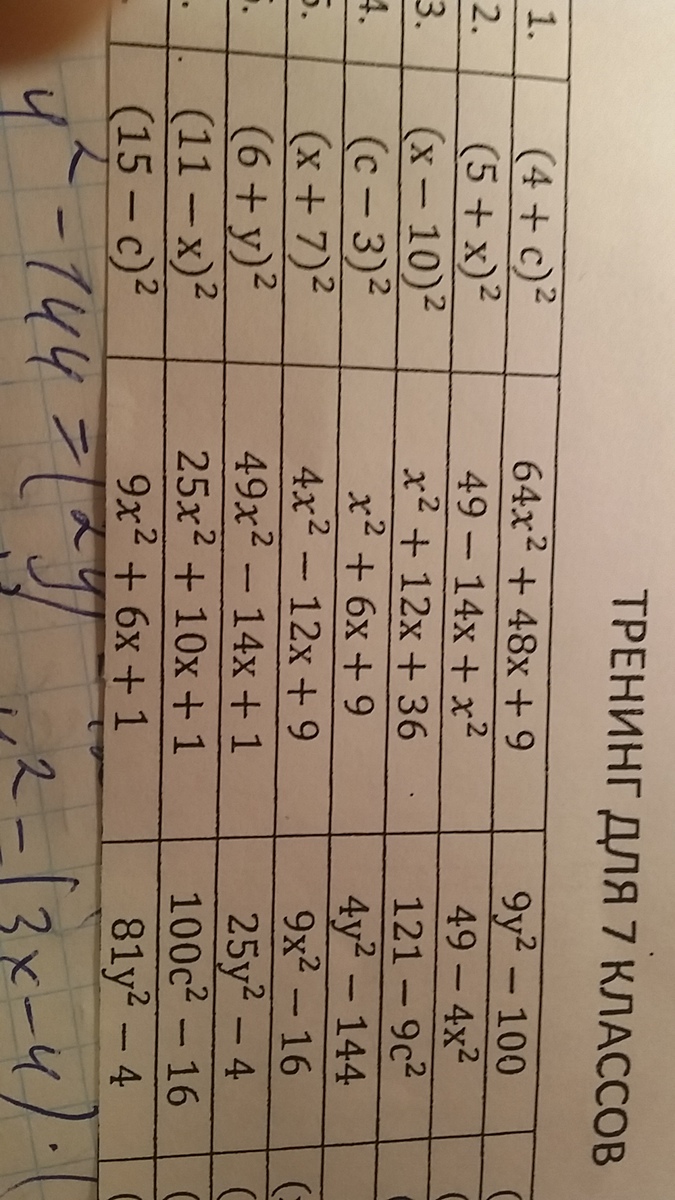 ТРЕНИНГ ДЛЯ 7 КЛАССОВ
1. (4 + c)² 64x² + 48x + 9 9y² − 100 (
2. (5 + x)² 49 − 14x + x² 49 − 4x² (
3. (x − 10)² x² + 12x + 36 121 − 9c² (
4. (c − 3)² x² + 6x + 9 4y² − 144
5. (x + 7)² 4x² − 12x + 9 9x² − 16 (
(6 + y)² 49x² − 14x + 1 25y² − 4 (
(11 − x)² 25x² + 10x + 1 100c² − 16 (
(15 − c)² 9x² + 6x + 1 81y² − 4 (
y² − 144 = (2y − 2 − (3x − 4) · (